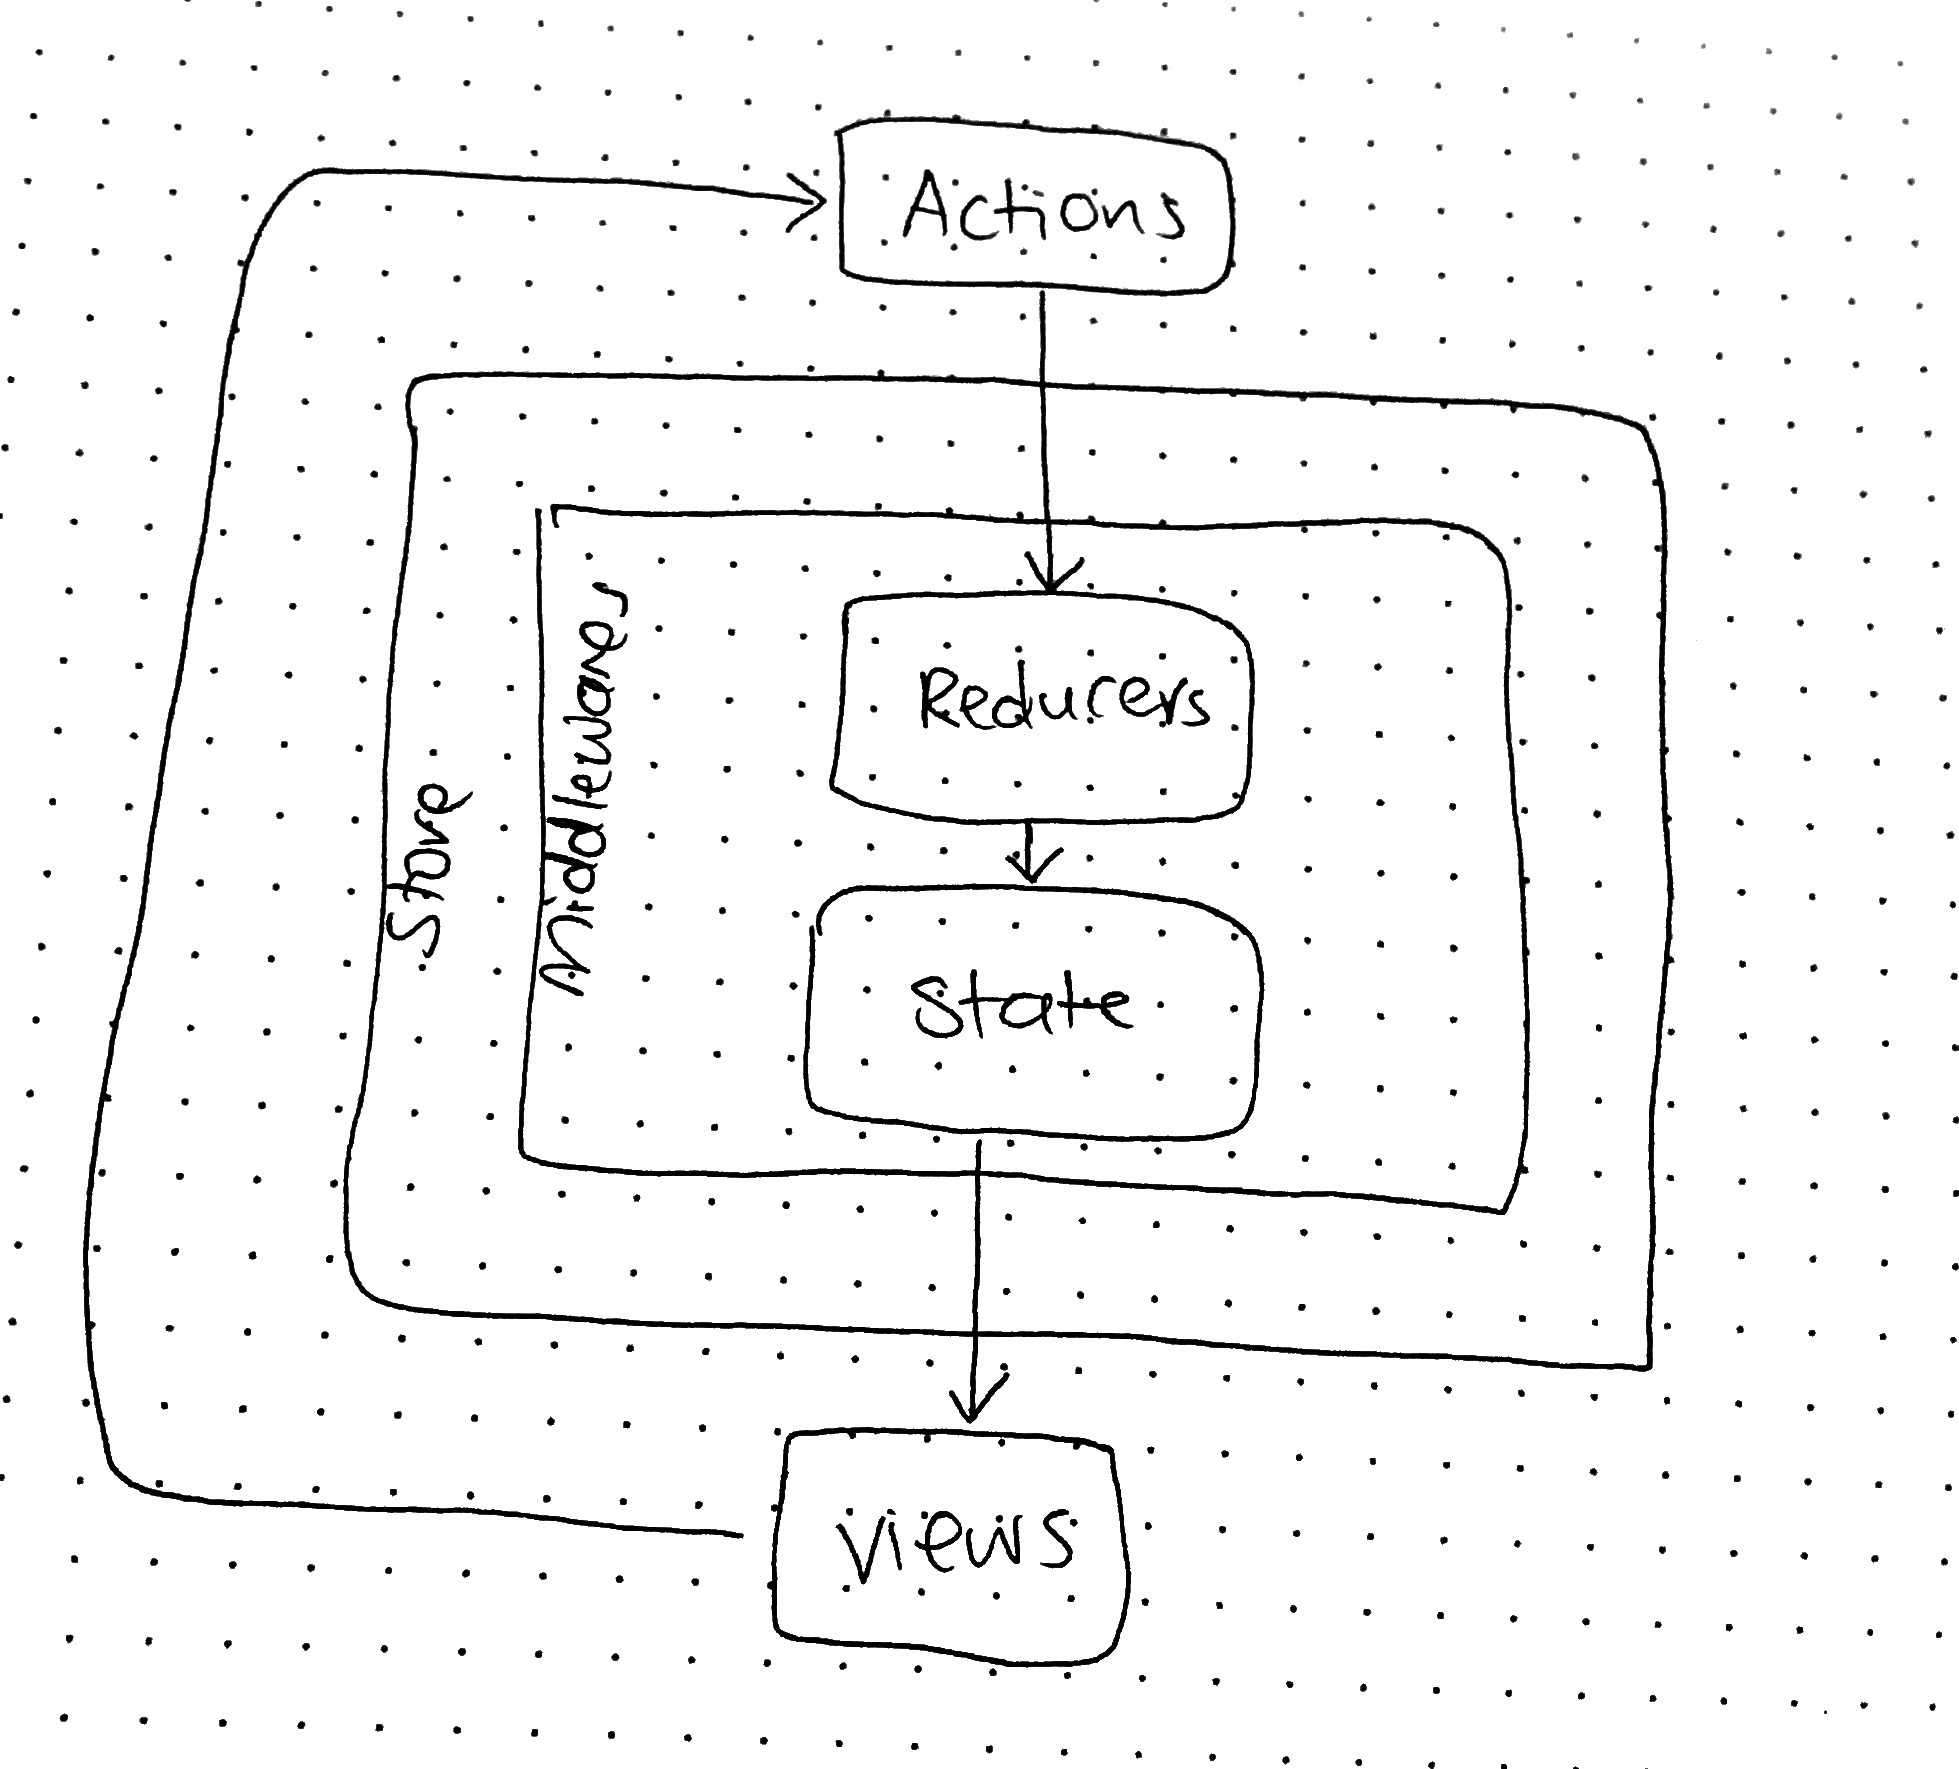 Actions
Store
Middlewares
Reducers
State
Views